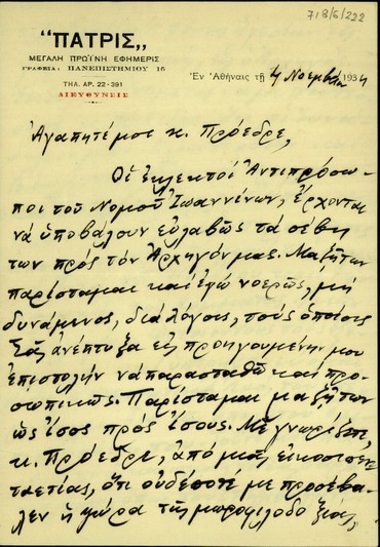 718/6/222
"ΠΑΤΡΙΣ„
ΜΕΓΑΛΗ ΠΡΩΪΝΗ ΕΦΗΜΕΡΙΣ
ΓΡΑΦΕΙΑ: ΠΑΝΕΠΙΣΤΗΜΙΟΥ 16
ΤΗΛ. ΑΡ. 22-391
ΔΙΕΥΘΥΝΣΙΣ
Ἐν Ἀθήναις τῇ Νοεμβρίου 1934
Ἀγαπητέ μοι κ. Πρόεδρε,
Οἱ ἐκλεκτοί Ἀντιπρόσω-
ποι τοῦ Νομοῦ Ἰωαννίνων, ἔρχονται
νά ὑποβάλουν εὐλαβῶς τά σέβη
των πρός τόν Ἀρχηγόν μας. Μαζῆ των
παρίσταμαι καί ἐγώ νοερῶς, μή
δυνάμενος, διά λόγους, τούς ὁποίους
Σᾶς ἀνέπτυξα εἰς προηγουμένην μου
ἐπιστολήν νά παρασταθῶ καί προ-
σωπικῶς. Παρίσταμαι μαζῆ των
ὡς ἴσος πρός ἴσους. Μέ γνωρίζετε,
κ. Πρόεδρε, ἀπό μιᾶς εἰκοσιπεν-
ταετίας, ὅτι οὐδέποτε με προσέβα-
λεν ἡ ψώρα τῆς μωροφιλοδοξίας,